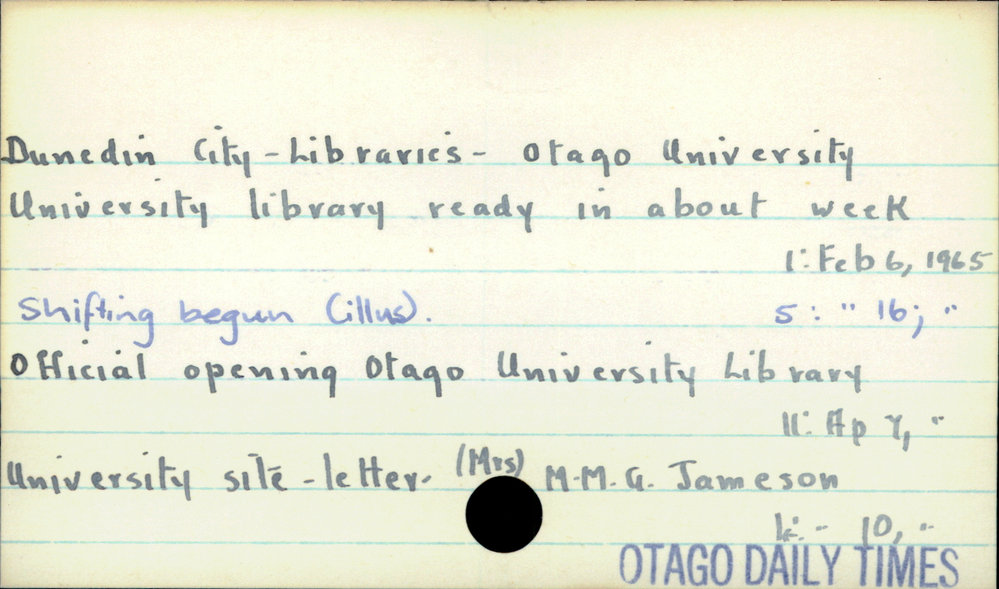 Dunedin City - Libraries - Otago University
University library ready in about week
1: Feb 6, 1965
Shifting begun (illus).
5: " 16; "
Official opening Otago University Library
11: Ap 7, "
University site - letter. (Mrs) M.M.G. Jameson
4: " 10, "
OTAGO DAILY TIMES